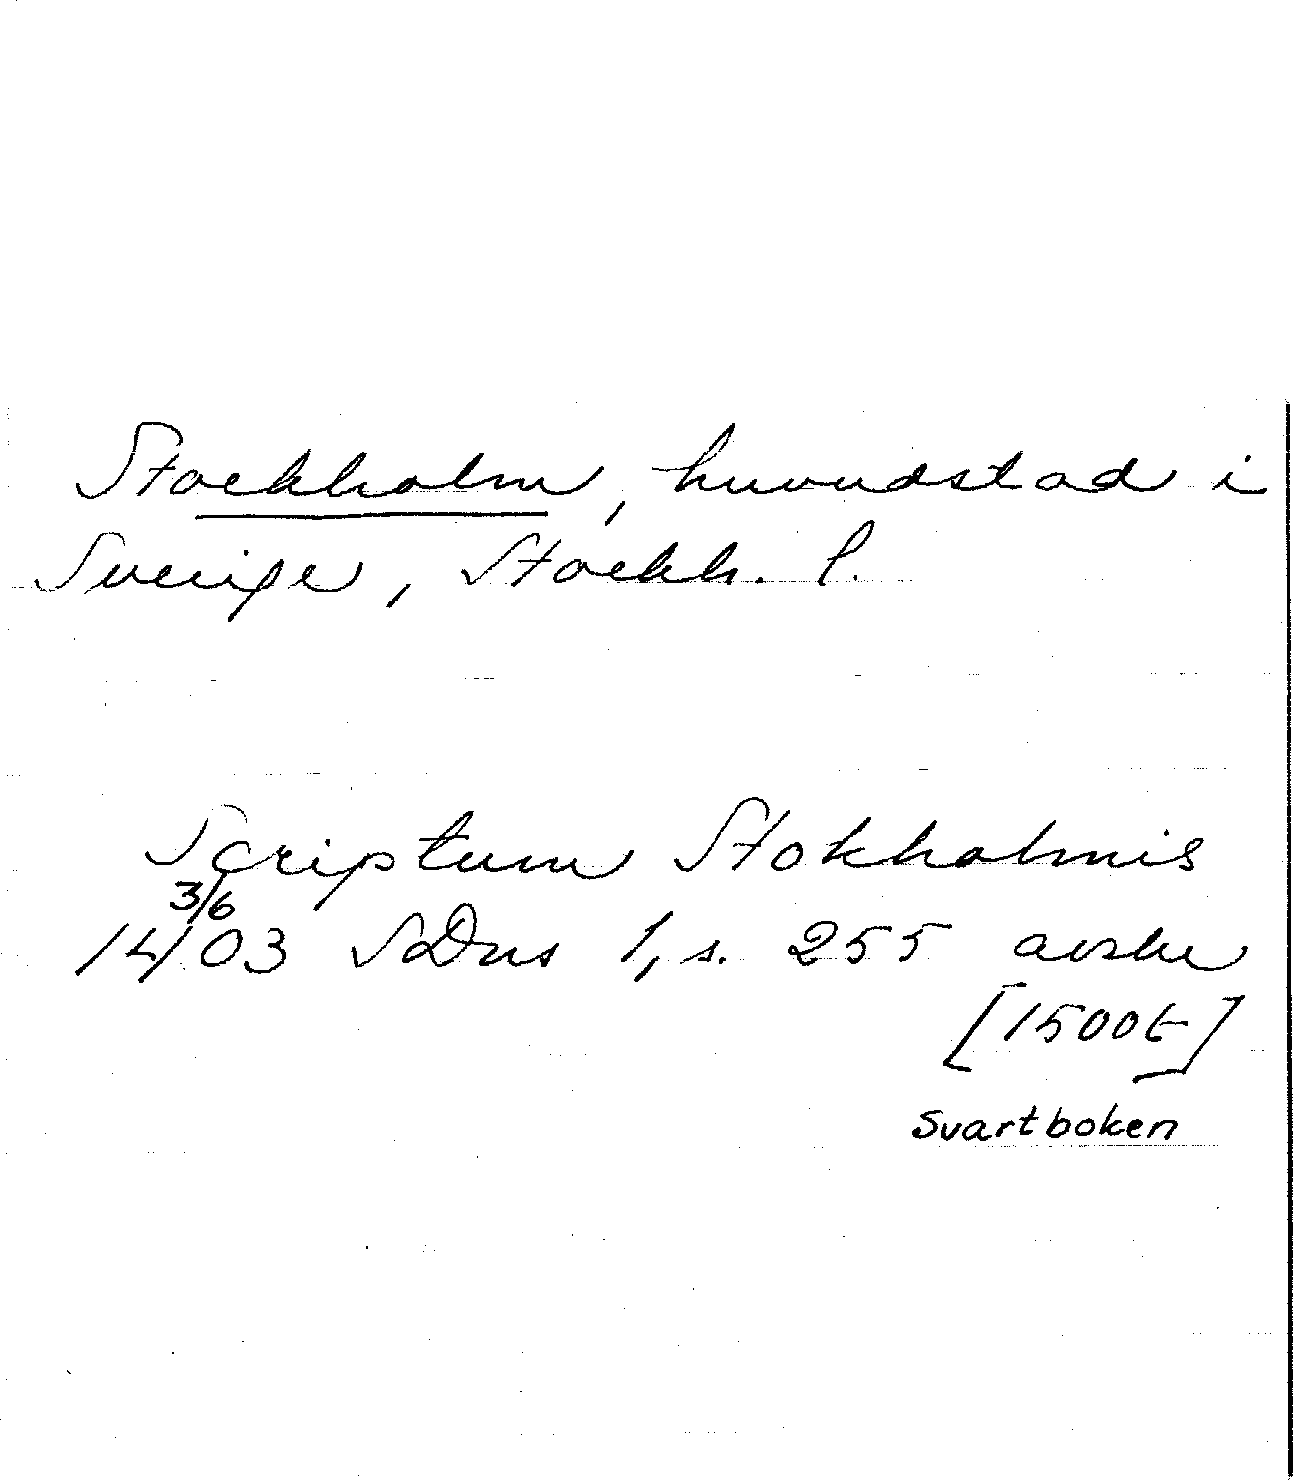 Stockholm, huvudstad i
Sverige, Stockh. l.
Scriptum Stokholmis
3/6
1403 SDns 1, s. 255 avskr
[1500t]
Svartboken